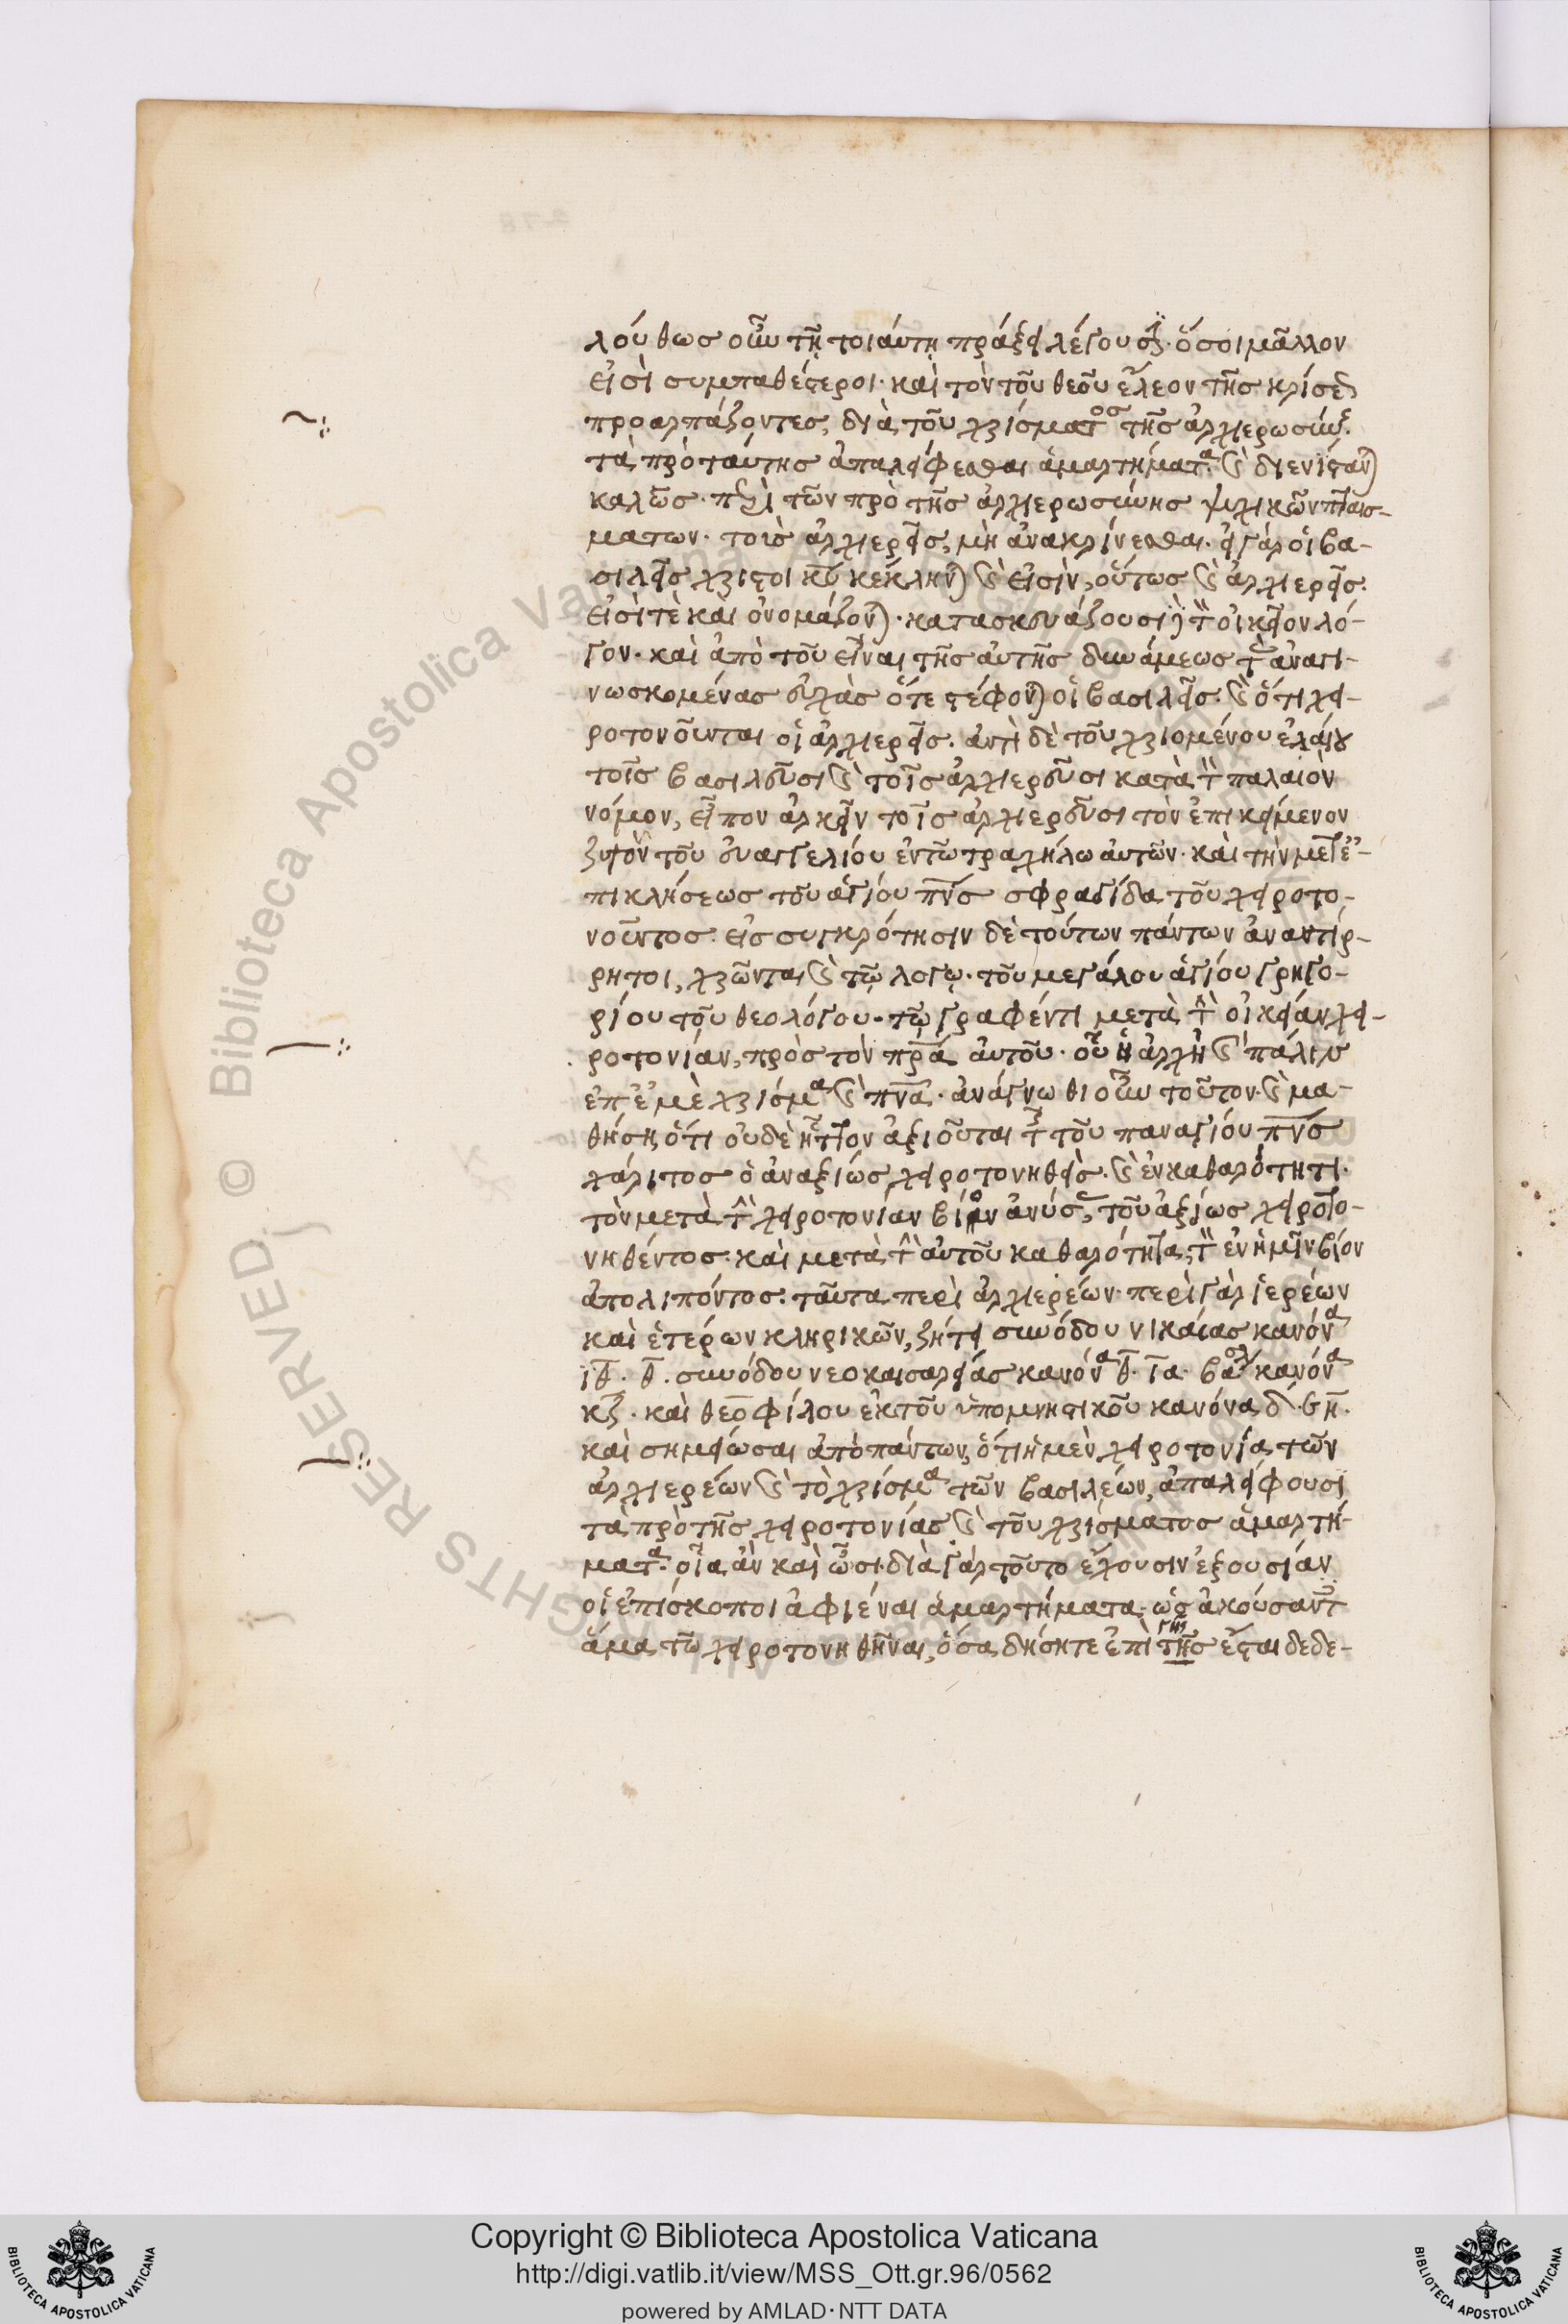 λούθως οὖν τῆ τοιάυτη πράξει λέγουσιν· ὅσοι μᾶλλον
εἰσὶ συμπαθέστεροι· καὶ τὸν τοῦ θεοῦ ἔλεον τῆς κρίσεως
προαρπάζοντες, διὰ τοῦ χρίσματος τῆς ἀρχιερωσύνης
τὰ πρὸ ταύτης ἀπαλείφεσθαι ἁμαρτήματα· καὶ
καλῶς· περὶ τῶν πρὸ τῆς ἀρχιερωσύνης ψυχικῶν πταισ-
ματων· τοὺς ἀρχιερεῖς, μὴ ἀνακρίνεσθαι· εἰ γὰρ οἱ βα-
σιλεῖς χριστοὶ κυ κέκληνται καὶ εἰσὶν, οὕτως καὶ ἀρχιερεῖς·
εἰσὶ τὲ καὶ ὀνομάζονται· κατασκευάζουσι τὸν οἰκεῖον λό-
γον· καὶ ἀπὸ τοῦ εἶναι τῆς ἀυτῆς δυνάμεως τὰς ἀναγι-
νωσκομένας εὐχὰς ὅτε στέφονται οἱ βασιλεῖς· καὶ ὅτι χει-
ροτονοῦνται οἱ ἀρχιερεῖς· ἀντὶ δὲ τοῦ χριομένου ἐλαίου
τοῖς βασιλεῦσι καὶ τοῖς ἀρχιερεῦσι κατὰ τὸν παλαιὸν
νόμον, εἶπον ἀρκεῖν τοῖς ἀρχιερεῦσι τὸν ἐπικείμενον
ζυγὸν τοῦ εὐαγγελίου ἐν τῶ τραχήλω ἀυτῶν· καὶ τὴν μετ ἐ-
πικλήσεως τοῦ ἁγίου πνς σφραγίδα τοῦ χειροτο-
νοῦντος· εἰς συγκρότησιν δὲ τούτων πάντων ἀναντίρ-
ρητοι, χρῶνται καὶ τῶ λογω· τοῦ μεγάλου ἁγίου γρηγο-
ρίου τοῦ θεολόγου· τῶ γραφέντι μετὰ τὴν οἰκείαν χει-
ροτονίαν, πρὸς τὸν πρα ἀυτοῦ· οὗ ἡ ἀρχὴ καὶ πάλιν
ἐπ ἐμὲ χρίσμα καὶ πνα· ἀνάγνωθι οὖν τοῦτον· καὶ μα-
θήση, ὅτι οὐδὲ ἧττον ἀξιοῦται τῆς τοῦ παναγίου πνς
χάριτος ὁ ἀναξίως χειροτονηθεὶς· καὶ ἐν καθαρότητι·
τὸν μετὰ τὴν χειροτονίαν βίον ἀνύσας, τοῦ ἀξίως χειροτο-
νηθέντος· καὶ μετὰ τὴν ἀυτοῦ καθαρότητα, τὸν ἐν ἡμῖν βίον
ἀπολιπόντος· ταῦτα περὶ ἀρχιερέων· περὶ γὰρ ἱερέων
καὶ ἑτέρων κληρικῶν, ζήτει συνόδου νικαίας κανόνα
ιθ· θ· συνόδου νεοκαισαρείας κανόνα θ· ια· βασ κανόνα
κζ· καὶ θεοφίλου ἐκ τοῦ ὑπομνηστικοῦ κανόνα δ· ϛη·
καὶ σημείωσαι ἀπὸ πάντων, ὅτι ἡ μὲν χειροτονία τῶν
ἀρχιερέων καὶ τὸ χρίσμα τῶν βασιλέων, ἀπαλείφουσι
τὰ πρὸ τῆς χειροτονίας καὶ τοῦ χρίσματος ἁμαρτή-
ματα· οἷα ἂν καὶ ὦσι· διὰ γὰρ τοῦτο ἔχουσιν ἐξουσίαν
οἱ ἐπίσκοποι ἀφιέναι ἁμαρτήματα· ὡς ἀκούσαντες
ἅμα τῶ χειροτονηθῆναι, ὅσα δήσητε ἐπὶ τῆς γῆς ἔσται δεδε-
Copyright © Biblioteca Apostolica Vaticana
http://digi.vatlib.it/view/MSS_Ott.gr.96/0562
powered by AMLAD·NTT DATA